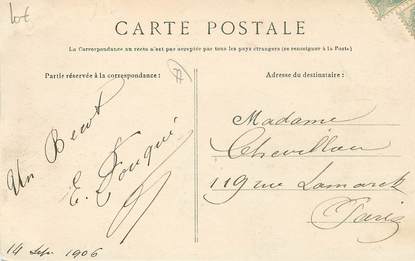 lot
CARTE POSTALE
La Correspondance au recto n'est pas acceptée par tous les pays étrangers (se renseigner à la Poste)
Partie réservée à la correspondance :
Adresse du destinataire :
Un Becot
E. Fouqué
14 Sep. 1906
Madame
Chevillau
119 rue Lamarck
Paris